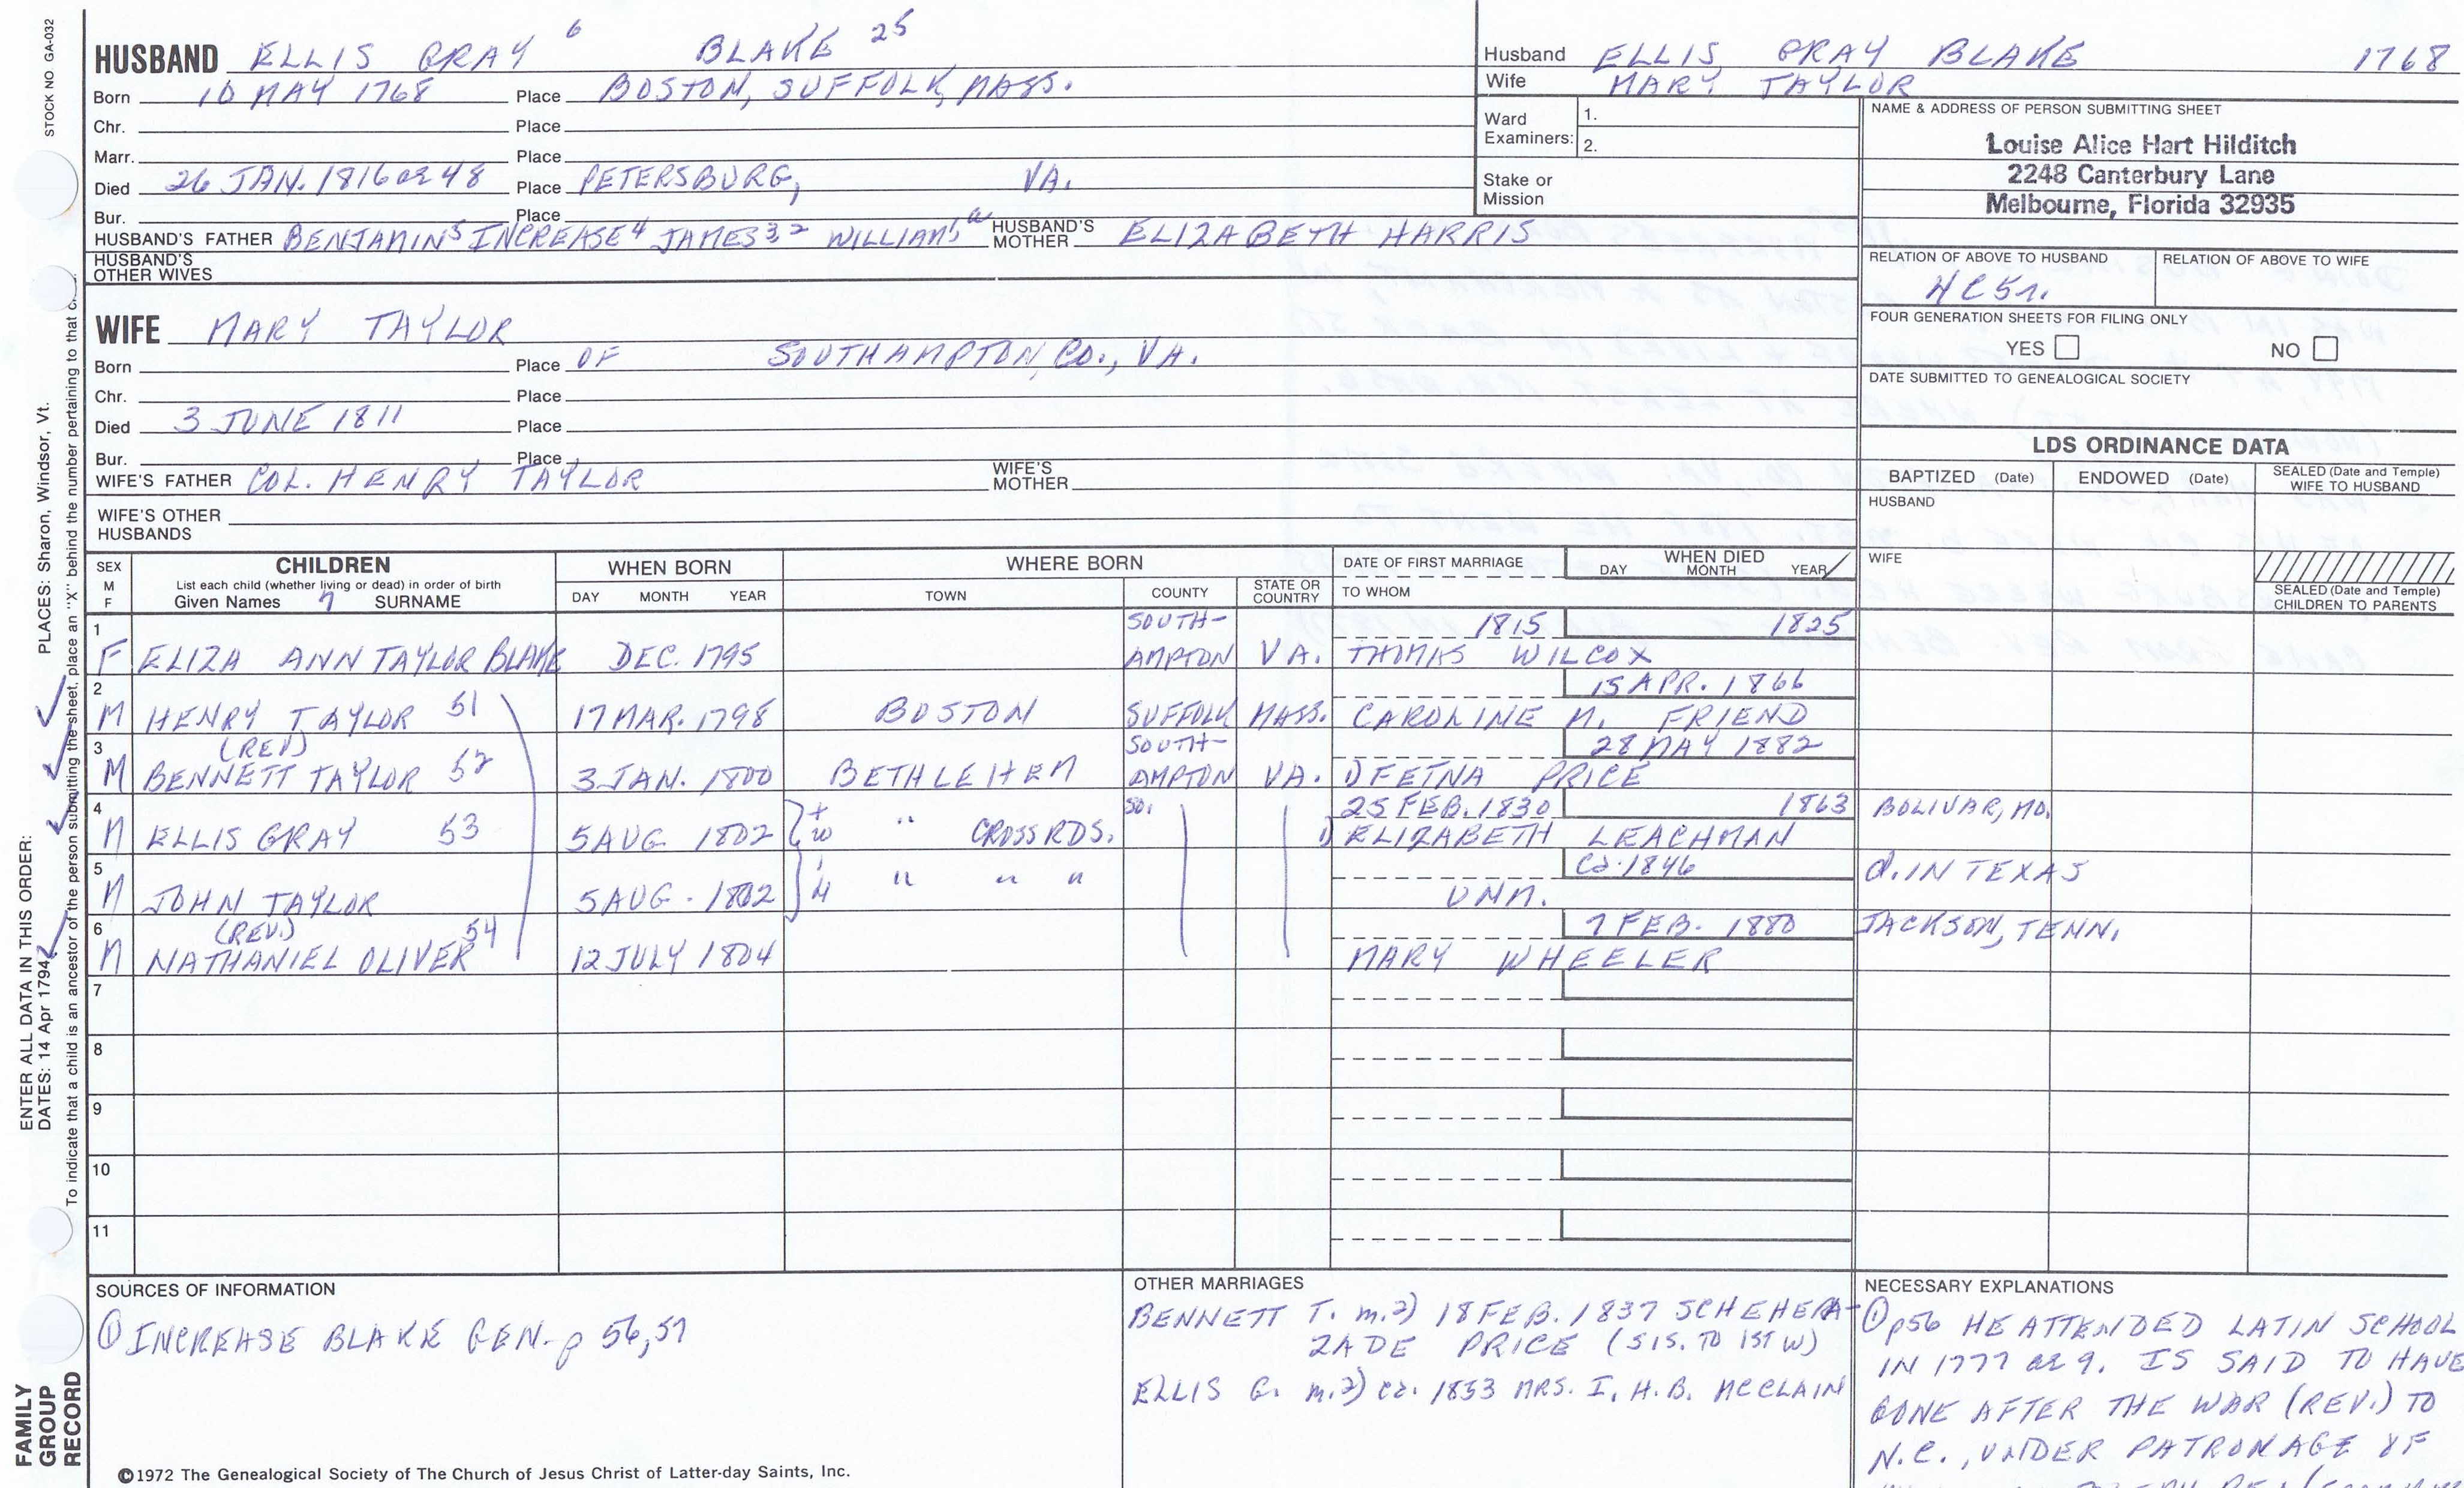 STOCK NO. GA-032
HUSBAND ELLIS GRAY 6 BLAKE 25
Born 10 MAY 1768 Place BOSTON, SUFFOLK, MASS.
Chr. Place
Marr. Place
Died 26 JAN. 1816 or 48 Place PETERSBURG, VA.
Bur. Place
HUSBAND'S FATHER BENJAMIN5 INCREASE4 JAMES3,2 WILLIAM1 HUSBAND'S MOTHER ELIZABETH HARRIS
HUSBAND'S OTHER WIVES
WIFE MARY TAYLOR
Born Place OF SOUTHAMPTON, CO., VA.
Chr. Place
Died 3 JUNE 1811 Place
Bur. Place
WIFE'S FATHER COL. HENRY TAYLOR WIFE'S MOTHER
WIFE'S OTHER HUSBANDS
Husband ELLIS GRAY BLAKE 1768
Wife MARY TAYLOR
Ward Examiners: 1.
2.
Stake or Mission
NAME & ADDRESS OF PERSON SUBMITTING SHEET
Louise Alice Hart Hilditch
2248 Canterbury Lane
Melbourne, Florida 32935
RELATION OF ABOVE TO HUSBAND RELATION OF ABOVE TO WIFE
FOUR GENERATION SHEETS FOR FILING ONLY
YES NO
DATE SUBMITTED TO GENEALOGICAL SOCIETY
LDS ORDINANCE DATA
BAPTIZED (Date) ENDOWED (Date) SEALED (Date and Temple) WIFE TO HUSBAND
HUSBAND
WIFE
SEALED (Date and Temple) CHILDREN TO PARENTS
SEX M F
CHILDREN
List each child (whether living or dead) in order of birth
Given Names 7 SURNAME
WHEN BORN
DAY MONTH YEAR
WHERE BORN
TOWN COUNTY STATE OR COUNTRY
DATE OF FIRST MARRIAGE
TO WHOM
WHEN DIED
DAY MONTH YEAR
1 SOUTH- 1815 1825
F ELIZA ANN TAYLOR BLAKE DEC. 1795 AMPTON VA. THOMAS WILCOX
2 15 APR. 1866
M HENRY TAYLOR 51 17 MAR. 1798 BOSTON SUFFOLK MASS. CAROLINE M. FRIEND
3 (REV) SOUTH- 28 MAY 1882
M BENNETT TAYLOR 52 3 JAN. 1800 BETHLEHEM AMPTON VA. 1) FETNA PRICE
4 SO. 25 FEB. 1830 1863 BOLIVAR, MO.
M ELLIS GRAY 53 5 AUG 1802 " CROSS RDS. 1) ELIZABETH LEACHMAN
5 ca. 1846 d. IN TEXAS
M JOHN TAYLOR 5 AUG. 1802 " " " UNM.
6 (REV.) 7 FEB. 1880 JACKSON, TENN.
M NATHANIEL OLIVER 54 12 JULY 1804 MARY WHEELER
7
8
9
10
11
SOURCES OF INFORMATION
① INCREASE BLAKE GEN. p 56, 57
OTHER MARRIAGES
BENNETT T. m. 2) 18 FEB. 1837 SCHEHERA-
ZADE PRICE (SIS. TO 1ST W)
ELLIS G. m. 2) ca. 1853 MRS. I. H. B. MCCLAIN
NECESSARY EXPLANATIONS
① p56 HE ATTENDED LATIN SCHOOL
IN 1777 or 9. IS SAID TO HAVE
GONE AFTER THE WAR (REV.) TO
N.C., UNDER PATRONAGE OF
©1972 The Genealogical Society of The Church of Jesus Christ of Latter-day Saints, Inc.
FAMILY GROUP RECORD
ENTER ALL DATA IN THIS ORDER:
DATES: 14 Apr 1794
PLACES: Sharon, Windsor, Vt.
To indicate that a child is an ancestor of the person submitting the sheet, place an "X" behind the number pertaining to that